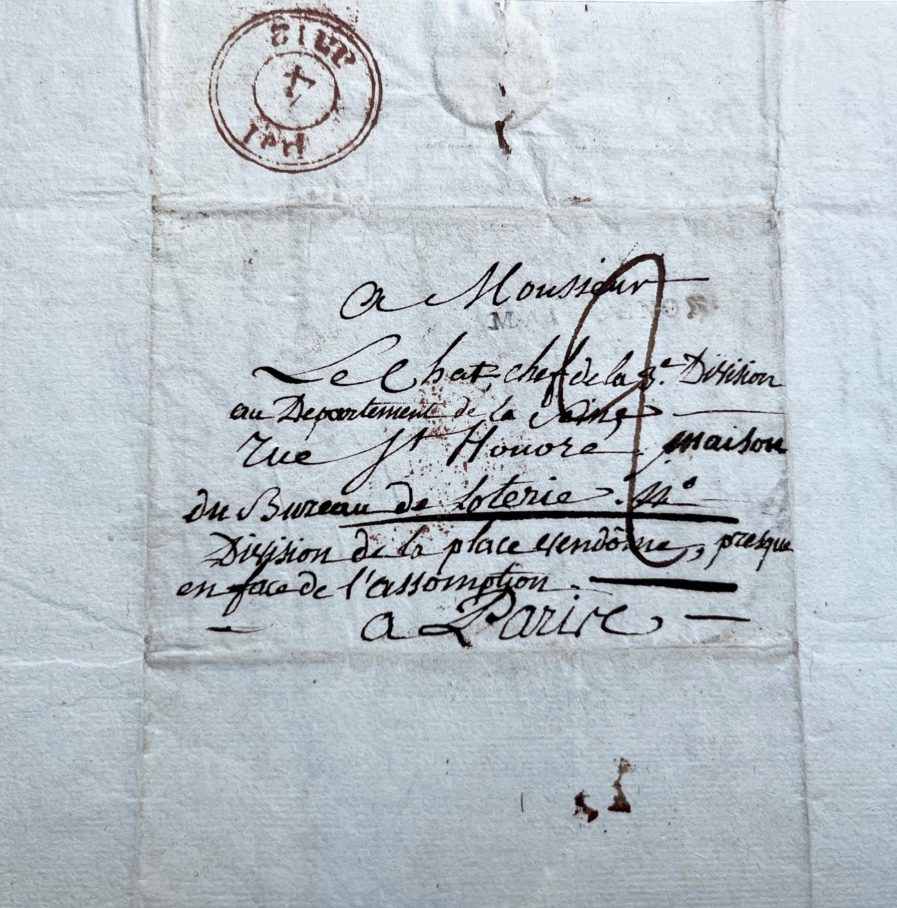 4
a Monsieur
Le Chat, chef de la 3.e Division
au Département de la Seine
rue St Honoré, maison
du Bureau de Loterie. N.o
Division de la place vendôme, presque
en face de l'assomption.
a Paris